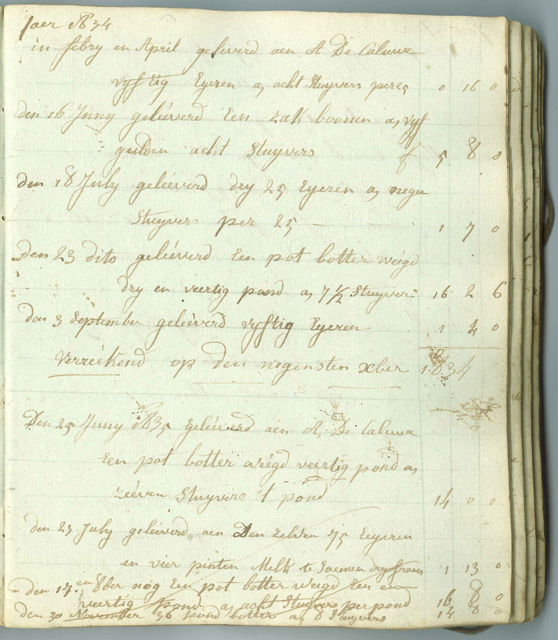 Jaer 1834
in febry en April geleverd aen A De Caluwe
vyftig Eyeren a, acht Stuyvers per 25 0 16 0
den 16 Juny geleéverd Een zak boonen a, vyf
gulden acht Stuyvers f 5 8 0
den 18 July geleéverd dry 25 Eyeren a, negen
Stuyvers per 25 1 7 0
den 23 dito geleéverd Een pot botter weegd
dry en veertig pond a, 7 1/2 Stuyver 16 2 6
den 3 September geleéverd vyftig Eyeren 1 4 0
Verréékend op den negensten xber 1834
Den 25 Juny 1835 geleéverd aen A, De Caluwe
Een pot botter wéégd veertig pond a,
zééven Stuyvers 't pond 14 0 0
den 23 July geleéverd aen Den zelden 75 Eeyeren
en vier pinten Melk te saemen dry 1 13 0
den 14 en 8ber nog Een pot botter weegd Een en
veertig pond a, acht Stuyvers per pond 16 8 0
den 30 November 36 pond botter a, 8 Stuyvers 14 8 0